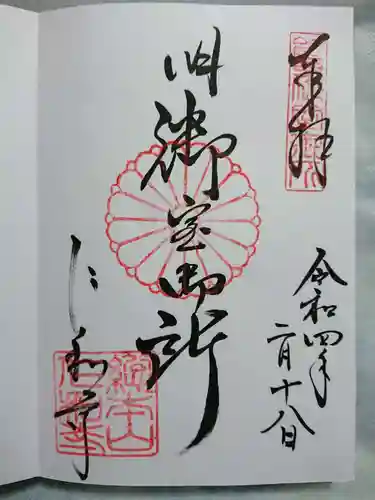 奉拝
令和四年
二月十八日
旧御室御所
仁和寺